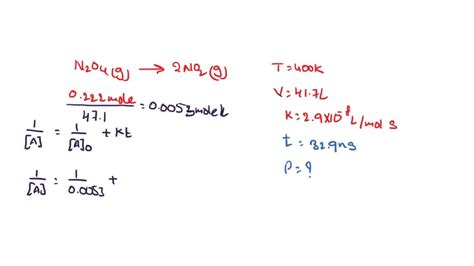 N₂O₄(g) → 2NO₂(g)
0.222 mole / 47.1 = 0.0053 mole k
1/[A] = 1/[A]₀ + kt
1/[A] = 1/0.0053 +
T = 400K
V = 41.7L
K = 2.9×10⁻⁸ L/mol S
t = 32.9 ns
P = ?